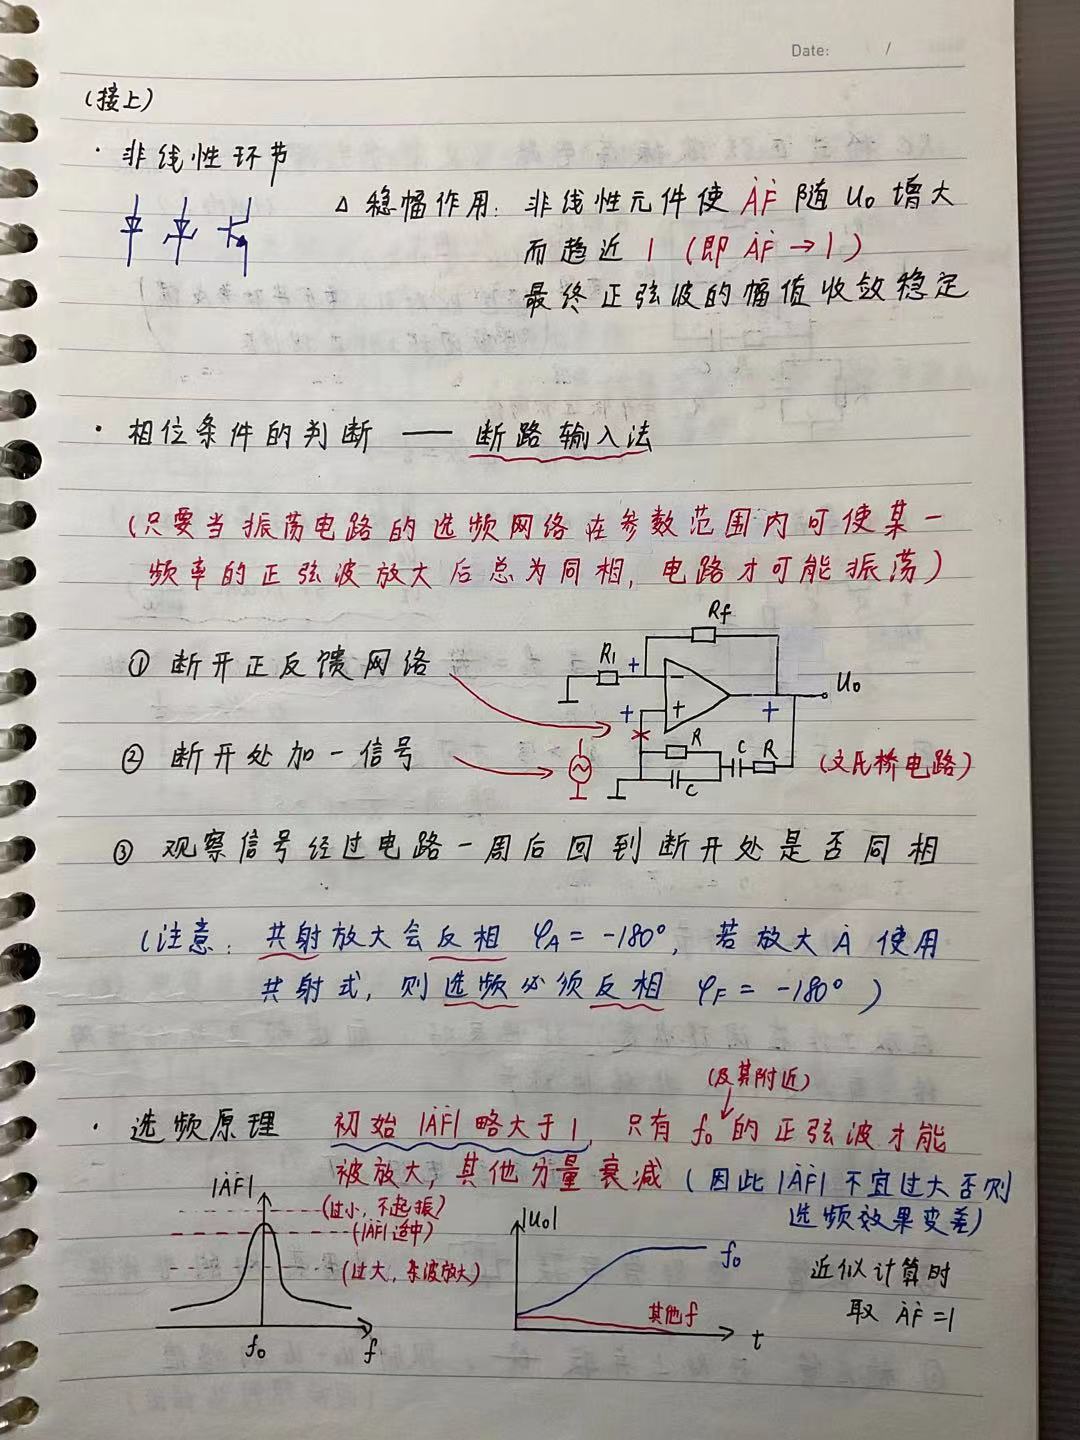 Date: /
(接上)
· 非线性环节
△ 稳幅作用: 非线性元件使 ȦḞ 随 Uo 增大
而趋近 1 (即 ȦḞ → 1)
最终正弦波的幅值收敛稳定
· 相位条件的判断 —— 断路输入法
(只要当振荡电路的选频网络在参数范围内可使某一
频率的正弦波放大后总为同相, 电路才可能振荡)
① 断开正反馈网络
Rf
R1
+
−
+
+
+
Uo
② 断开处加一信号
R
C
C
R
(文氏桥电路)
③ 观察信号经过电路一周后回到断开处是否同相
(注意: 共射放大会反相 φA = -180°, 若放大 Ȧ 使用
共射式, 则选频必须反相 φF = -180°)
(及其附近)
· 选频原理 初始 |ȦḞ| 略大于 1, 只有 fo 的正弦波才能
被放大, 其他分量衰减 (因此 |ȦḞ| 不宜过大否则
选频效果变差)
|ȦḞ|
(过小, 不起振)
(|ȦḞ| 适中)
(过大, 杂波放大)
fo
f
|Uo|
fo
其他 f
t
近似计算时
取 ȦḞ = 1